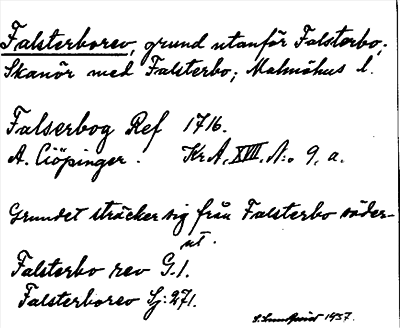 Falsterborev, grund utanför Falsterbo;
Skanör med Falsterbo; Malmöhus l.
Falserbog Ref 1716.
A. Ciöpinger. Kr.A. XVIII. N:o 9, a.
Grundet sträcker sig från Falsterbo söder-
ut.
Falsterbo rev G.1.
Falsterborev Sj: 271.
S. Lundquist 1937.